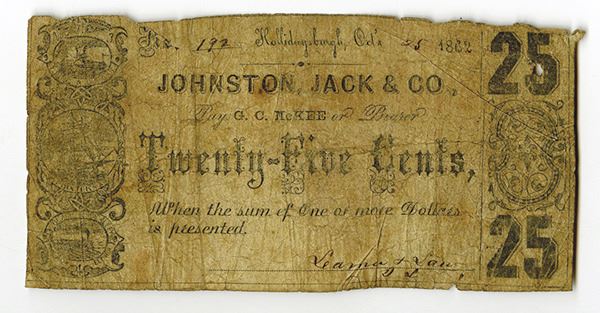 No. 192 Hollidaysburgh, Oct'r 25 1862
25
JOHNSTON, JACK & CO.,
Pay G. C. McKEE or Bearer
Twenty-Five Cents,
When the sum of One or more Dollars
is presented.
25